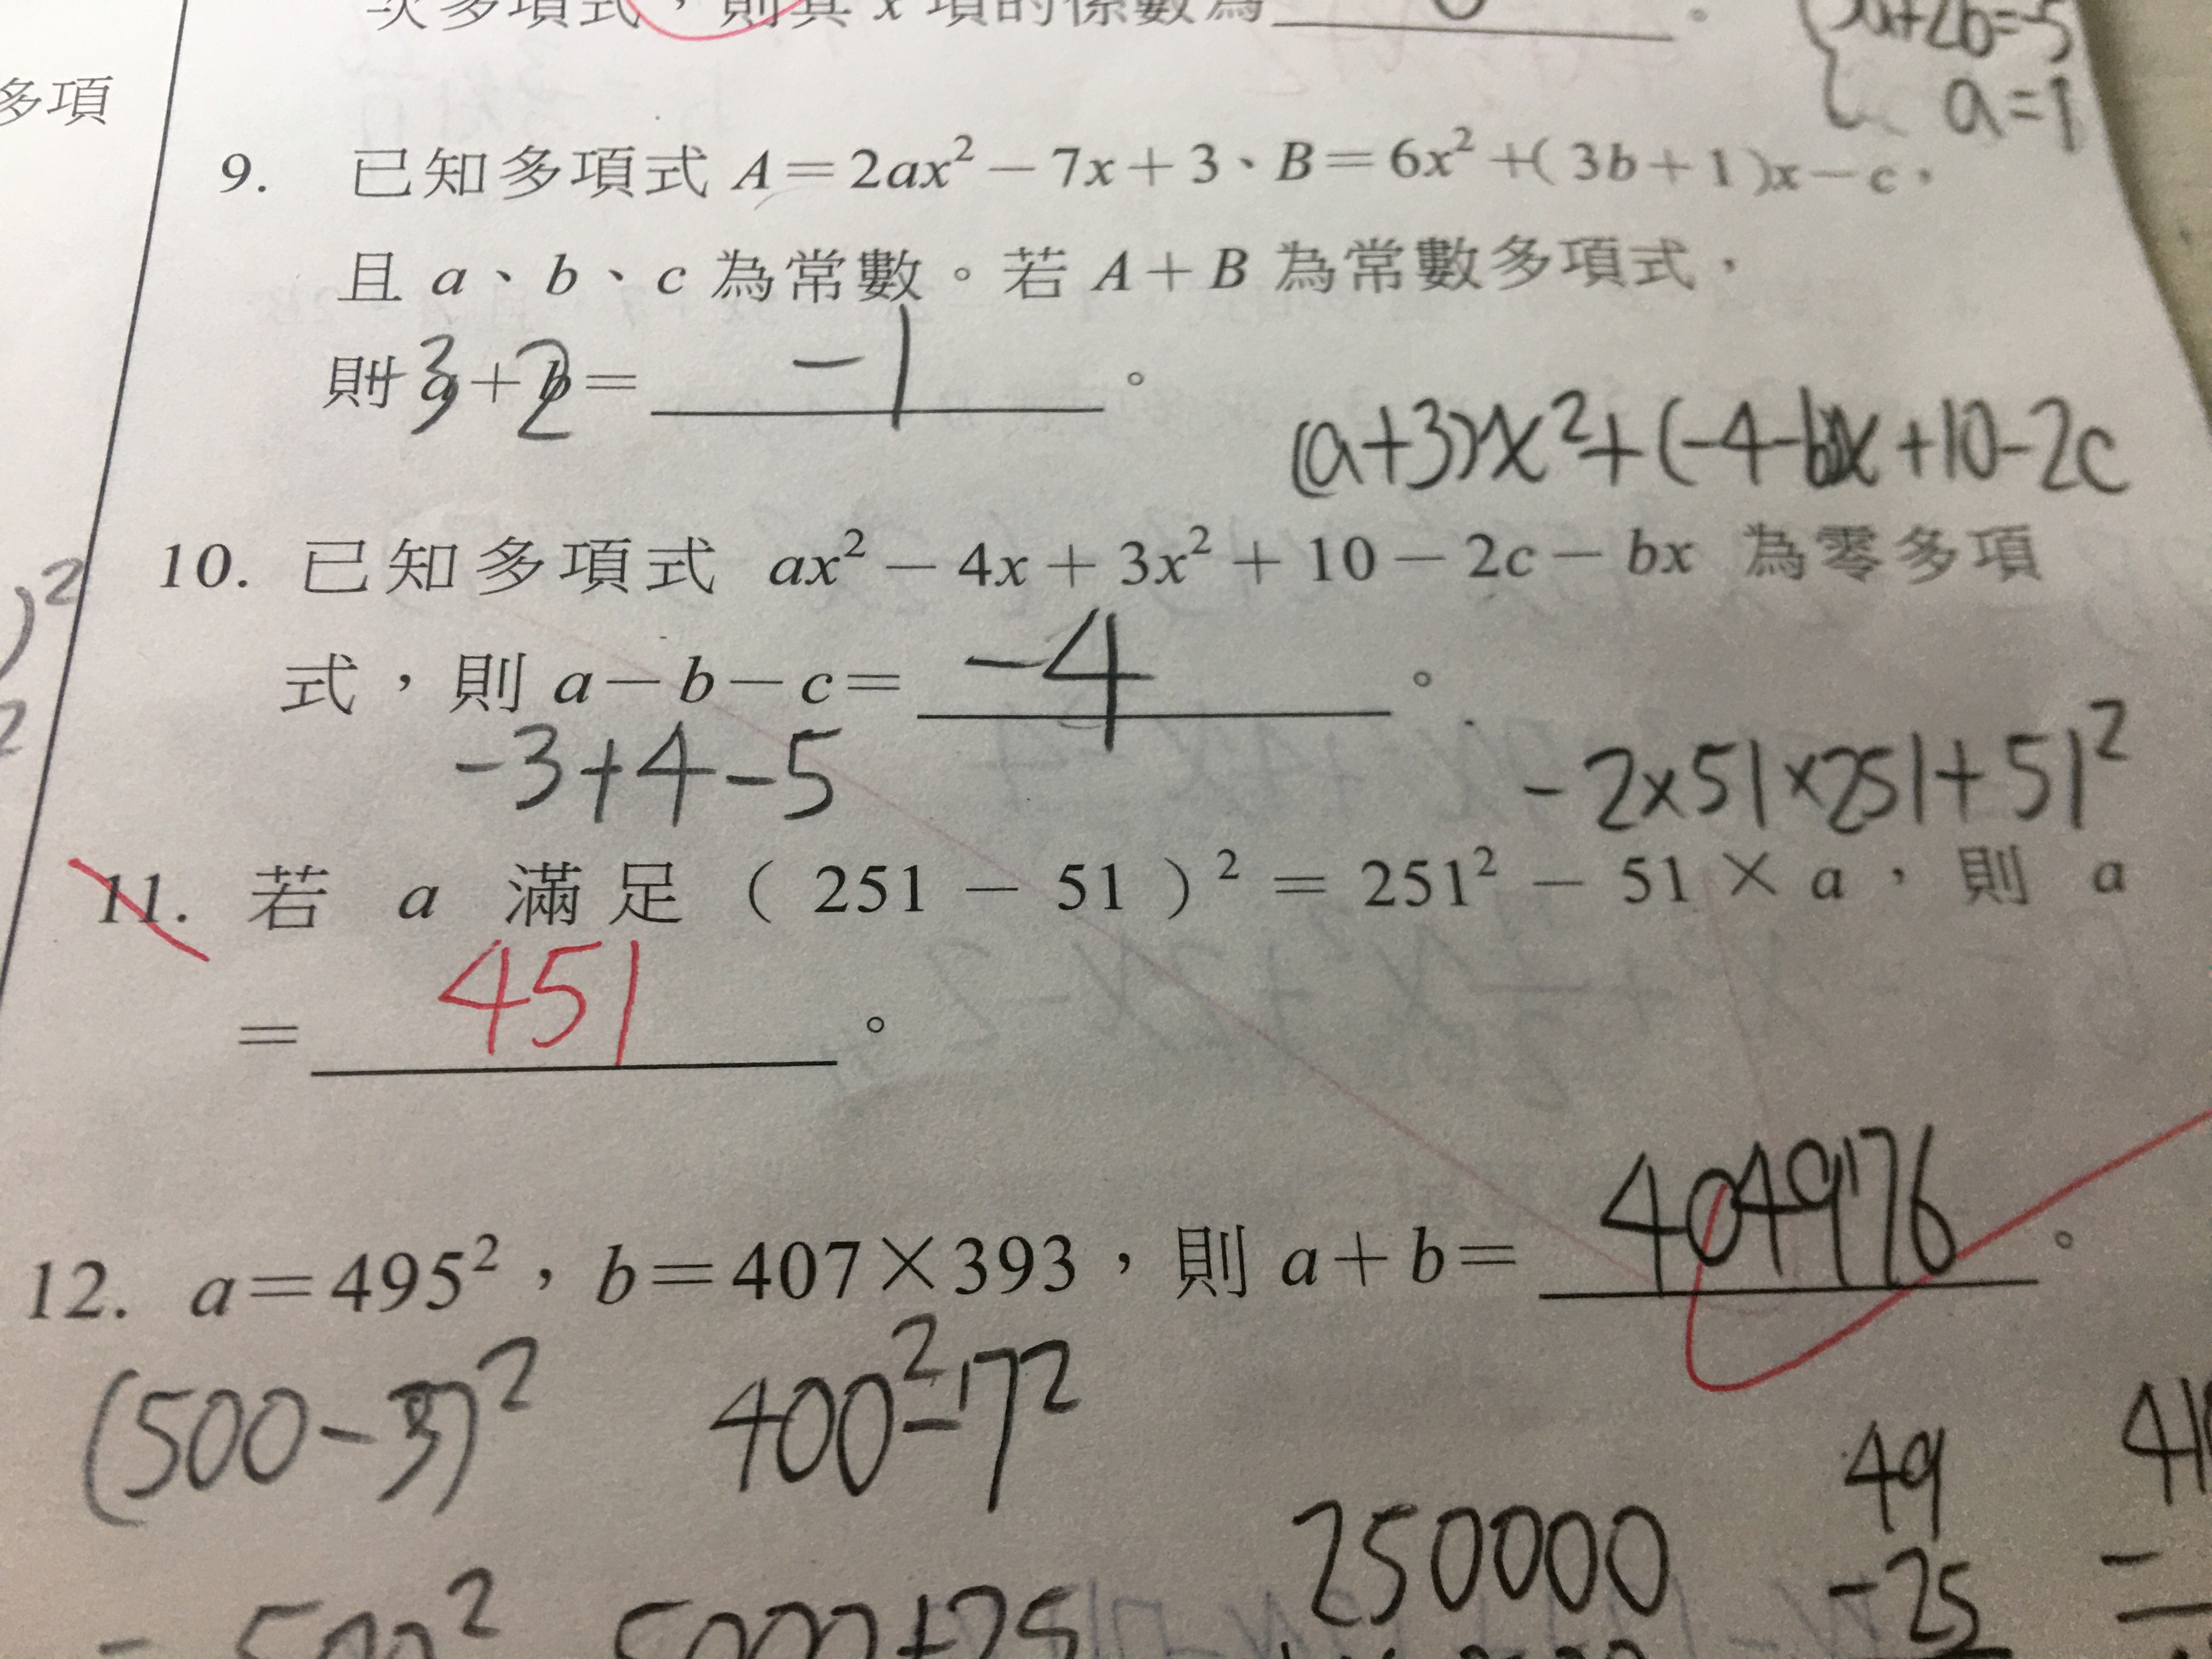 次多項式，則其 x 項的係數為
a=1
多項
9. 已知多項式 A=2ax²-7x+3、B=6x²+(3b+1)x-c，
且 a、b、c 為常數。若 A+B 為常數多項式，
則 a+b= -1 。
-3+2
(a+3)x²+(-4-b)x+10-2c
10. 已知多項式 ax²-4x+3x²+10-2c-bx 為零多項
式，則 a-b-c= -4 。
-3+4-5
-2×51×251+51²
11. 若 a 滿足(251-51)²=251²-51×a，則 a
= 451 。
12. a=495²，b=407×393，則 a+b= 404976 。
400²-7²
250000
49
-25